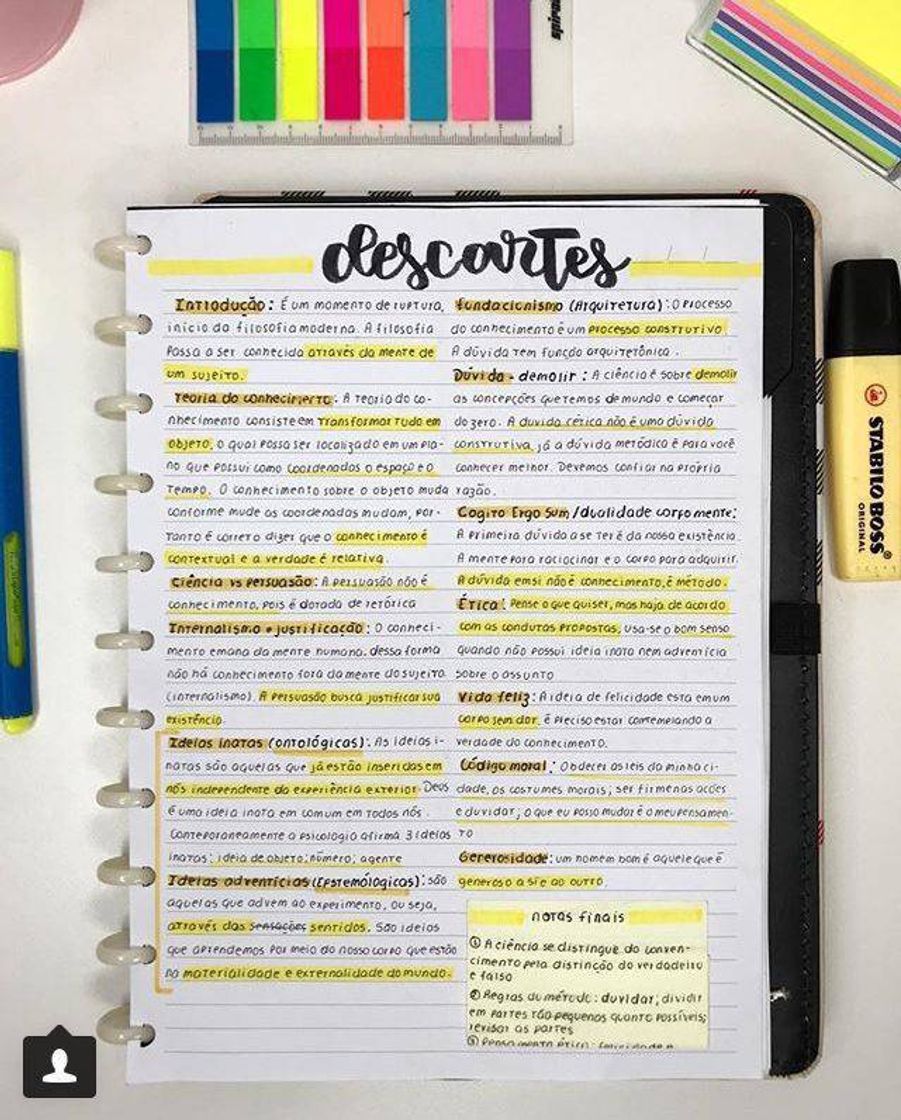 descartes
Introdução: É um momento de ruptura,
início da filosofia moderna. A filosofia
Passa a ser conhecida através da mente de
um sujeito.
Teoria do conhecimento: A teoria do co-
nhecimento consiste em transformar tudo em
objeto, o qual possa ser localizado em um pla-
no que possui como coordenadas o espaço e o
tempo. O conhecimento sobre o objeto muda
conforme mude as coordenadas mudam, por-
tanto é correto dizer que o conhecimento é
contextual e a verdade é relativa.
Ciência vs persuasão: A persuasão não é
conhecimento, pois é dotada de retórica
Internalismo e justificação: O conheci-
mento emana da mente humana, dessa forma
não há conhecimento fora da mente do sujeito
(internalismo). A persuasão busca justificar sua
existência.
Ideias inatas (ontológicas): As ideias i-
natas são aquelas que já estão inseridas em
nós independente da experiência exterior. Deus
é uma ideia inata em comum em todos nós.
Contemporaneamente a psicologia afirma 3 ideias
inatas: ideia de objeto; número; agente
Ideias adventícias (Epstemológicas): são
aquelas que advem ao experimento, ou seja,
através das sensações sentidos. São ideias
que aprendemos por meio do nosso corpo que estão
na materialidade e externalidade do mundo.
fundacionismo (Arquitetura): O processo
do conhecimento é um processo construtivo.
A dúvida tem função arquitetônica.
Dúvida - demolir: A ciência é sobre demolir
as concepções que temos de mundo e começar
do zero. A duvida cética não é uma dúvida
construtiva, já a dúvida metódica é para você
conhecer melhor. Devemos confiar na própria
razão.
Cogito Ergo Sum / dualidade corpo mente:
A primeira dúvida a se ter é da nossa existência.
A mente para raciocinar e o corpo para adquirir.
A dúvida em si não é conhecimento, é método.
Ética: Pense o que quiser, mas haja de acordo
com as condutas propostas, usa-se o bom senso
quando não possui ideia inata nem adventícia
sobre o assunto
Vida feliz: A ideia de felicidade esta em um
corpo sem dor, é preciso estar contemplando a
verdade do conhecimento.
Código moral: Obdecer as leis da minha ci-
dade, os costumes morais; ser firme nas ações
e duvidar; o que eu posso mudar é o meu pensamen-
to
Generosidade: um homem bom é aquele que é
generoso a si e ao outro.
notas finais
① A ciência se distingue do conven-
cimento pela distinção do verdadeiro
e falso
② Regras do método: duvidar; dividir
em partes tão pequenas quanto possíveis;
revisar as partes
③ Pensamento ético: felicidade e
STABILO BOSS
ORIGINAL